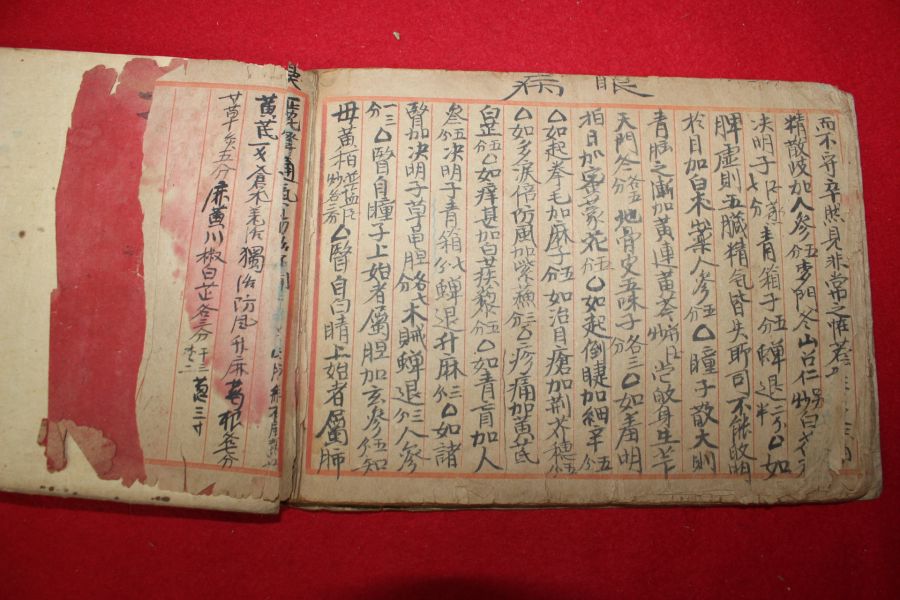 眼病
而不守卒然見非常之怪若
精散岐加人參五分麥門冬山召仁炒白
決明子七分青箱子五分蟬退二分△如
脾虛則五臟精氣皆失所司不能啟明
於目加白朮人參五分△瞳子散大則
青
加黃連黃芩
生
天門冬各五分地骨皮五味子各三分△如羞明
怕日加密蒙花五分△如起倒睫加細辛五分
△如起拳毛加麻子五分如治目瘡加荊芥穗五分
△如多淚倍防風加紫蘇三分△疼痛加黃芪
白芷五分△如痒甚加白蒺藜五分△如青盲加人
參五分決明子青箱七分蟬退升麻三分△如諸
瞖加決明子草龍胆各七分木賊蟬退三分人參
一分△瞖自瞳子上始者屬胆加玄參五分知
母黃柏並鹽炒各三分△瞖自白睛上始者屬肺
通氣
黃芪一戈倉朮羌活獨活防風升麻葛根各七分
甘草各五分麻黃川椒白芷各三分干三枣二蔥三寸